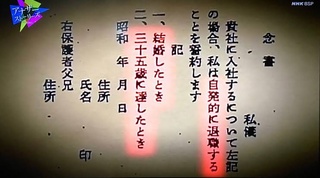 アナザーストーリーズ
NHK BSP
念書
私儀
貴社に入社するについて左記
の場合、私は自発的に退職する
ことを誓約します
記
一、結婚したとき
二、三十五歳に達したとき
昭和 年 月 日
住所
氏名 印
右保護者父兄
住所